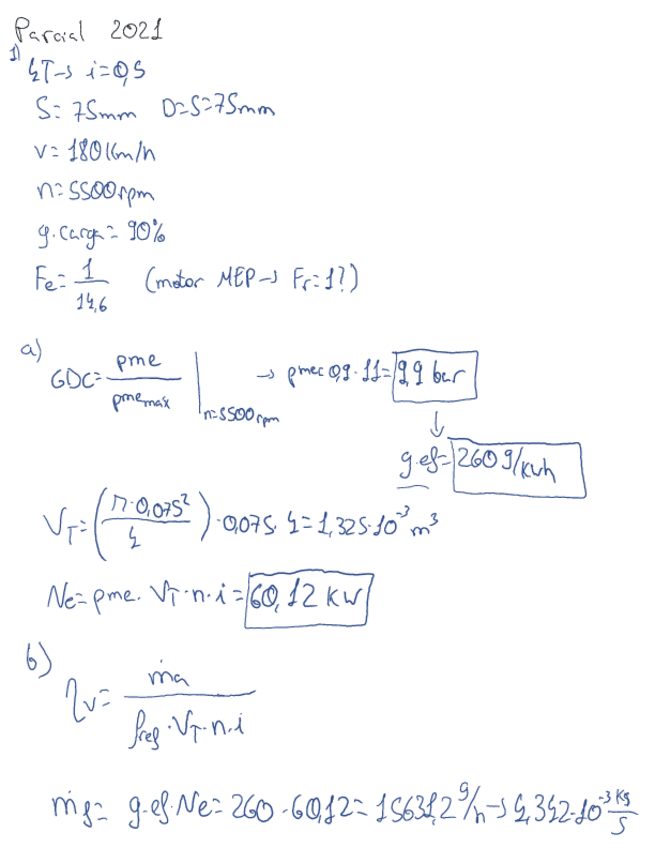 Parcial 2021
1)
4T→ i=0,5
S= 75mm D=S=75mm
v= 180 km/h
n=5500rpm
g.carga= 90%
Fe= 1/14,6 (motor MEP→ Fr=1?)
a)
GDC= pme/pme max | n=5500rpm → pme= 0,9·11= 9,9 bar
↓
g.ef= 260 g/kwh
V_T= (π·0,075²/4)·0,075·4=1,325·10⁻³ m³
Ne= pme·V_T·n·i= 60,12 KW
b)
η_v= ṁa/ρref·V_T·n·i
ṁf= g.ef·Ne= 260·60,12= 15631,2 g/h→ 4,342·10⁻³ Kg/s